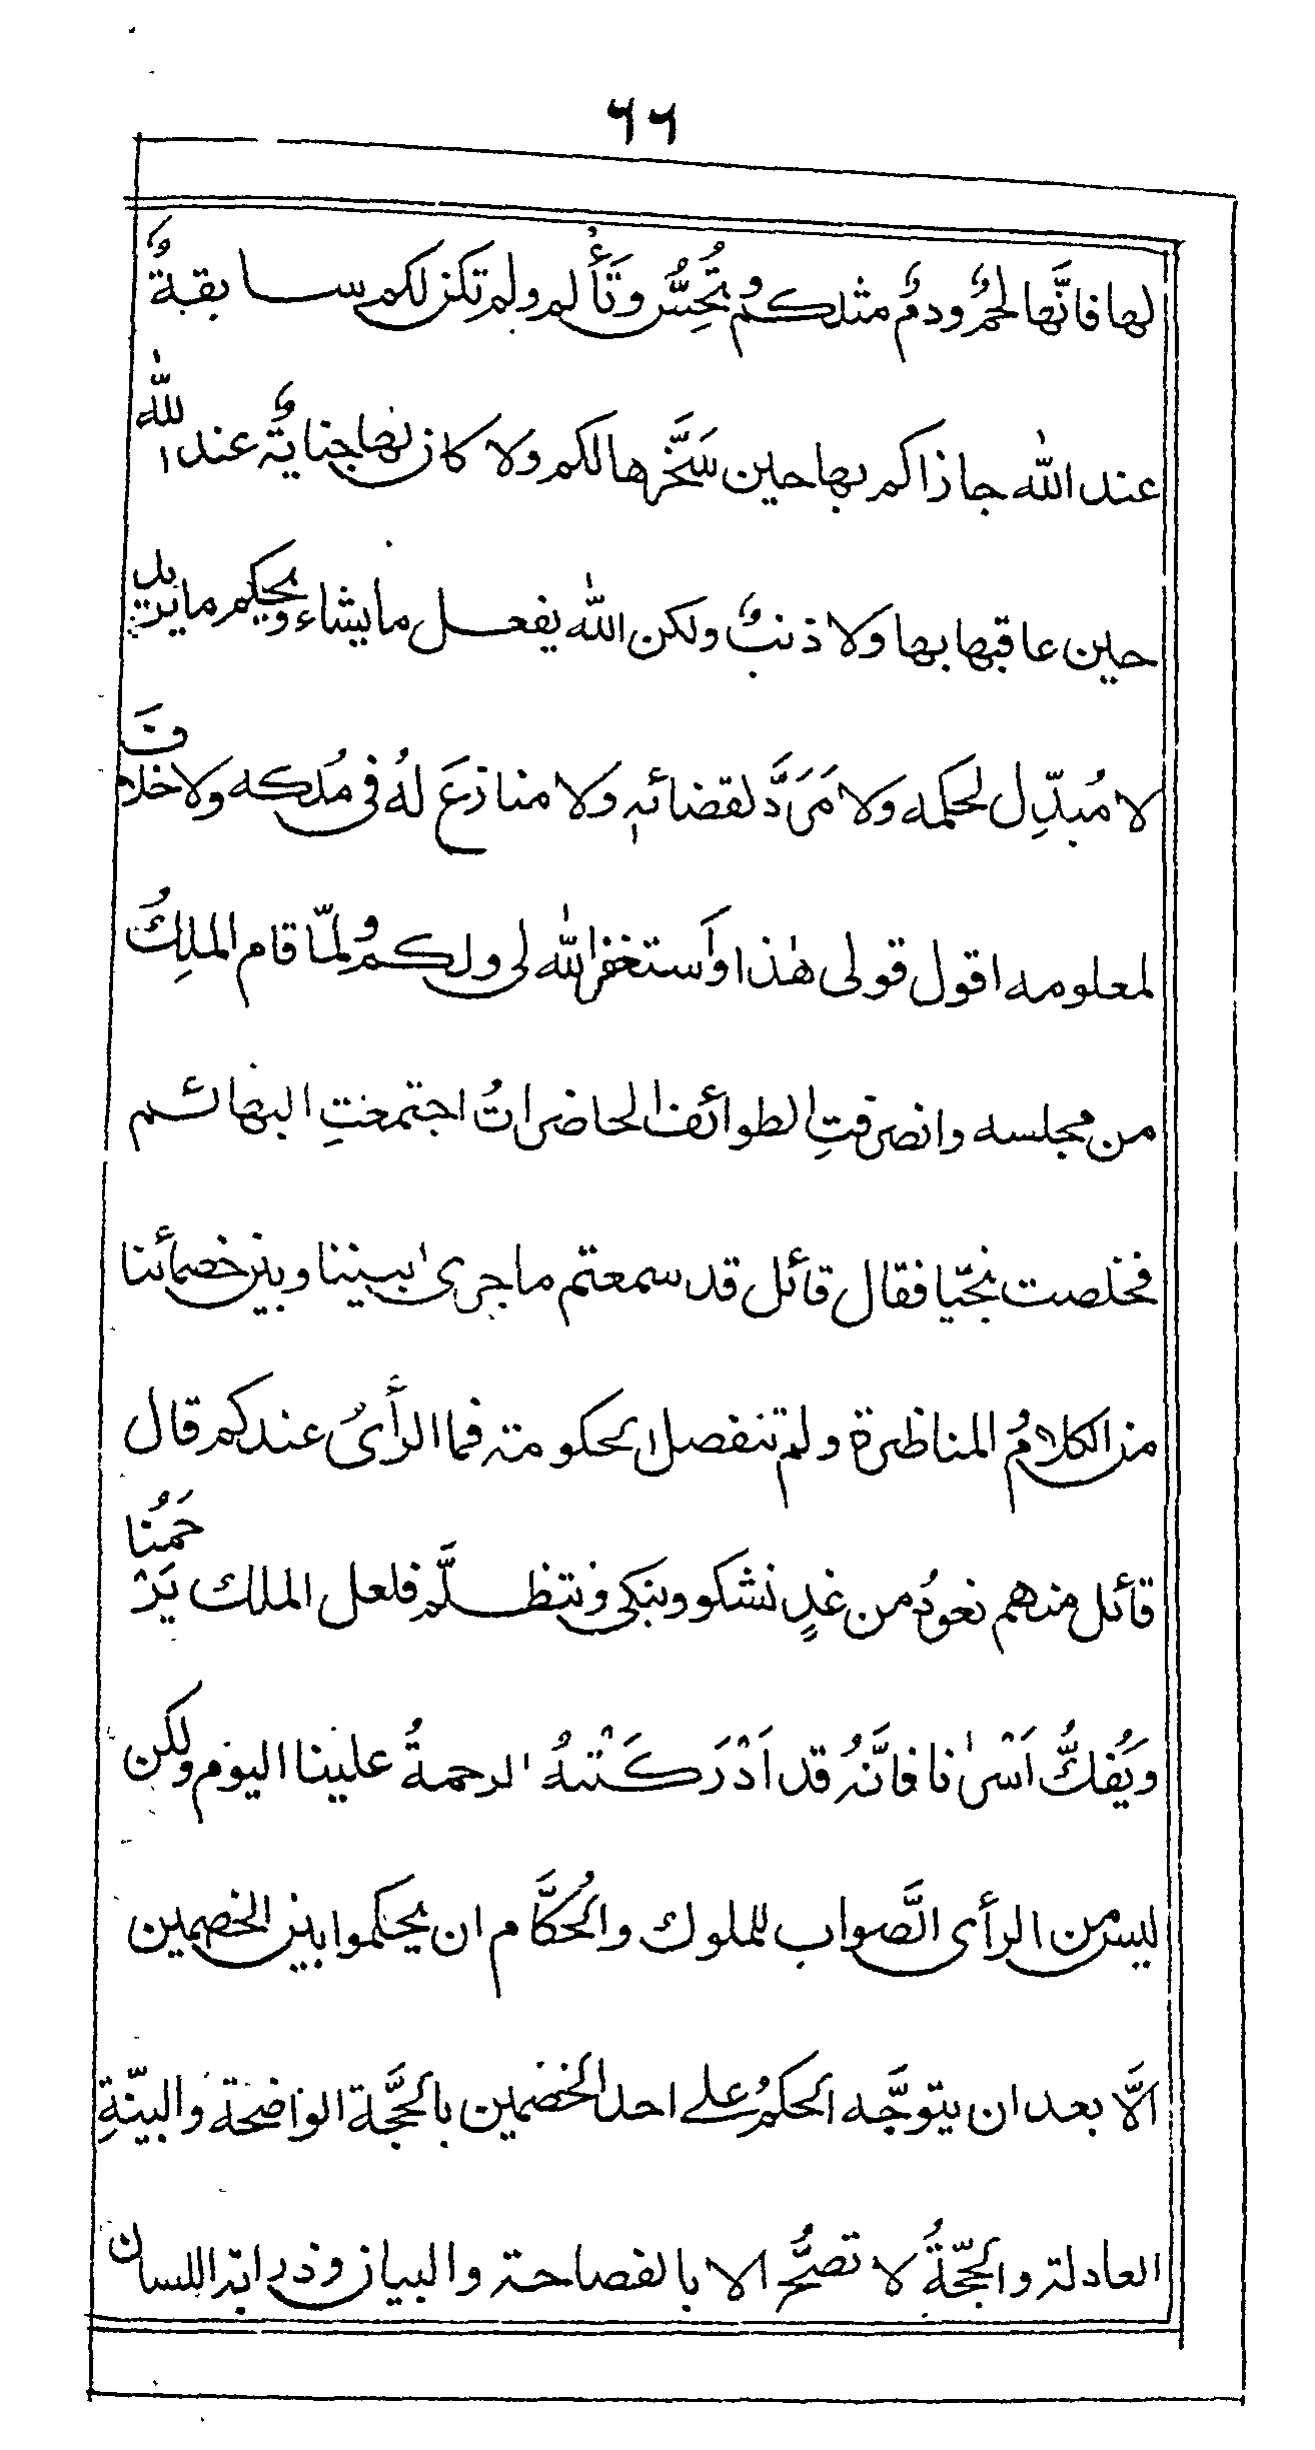 ٦٦
لها فانَّها لحمٌ ودمٌ مثلكم وتُحِسُّ وتَأَلم ولم تكن لكم سابقةٌ
عند الله جازاكم بها حين سَخَّرها لكم ولا كان لها جنايةٌ عند الله
حين عاقبها بها ولا ذنبٌ ولكن الله يفعل ما يشاء ويحكم ما يريد
لا مُبدِّل لحكمه ولا مَرَدَّ لقضائه ولا منازعَ لهُ فى مُلكه ولا خلافَ
لمعلومه اقول قولى هٰذا وأَستغفر الله لى ولكم ولمّا قام الملِكُ
من مجلسه وانصرفتِ الطوائف الحاضراتُ اجتمعتِ البهائم
فخلصت نجيّا فقال قائل قد سمعتم ما جرىٰ بيننا وبين خصمائنا
من الكلام المناظرة ولم تنفصل الحكومة فما الرأىُ عندكم قال
قائل منهم نعودُ من غدٍ نشكو ونبكى ونتظلَّم فلعل الملك يَرْحَمُنا
ويَفُكُّ اَسْرٰنا فانَّهُ قد اَدْرَكَتْهُ الرحمةُ علينا اليوم ولكن
ليس من الرأى الصَّواب للملوك والحُكَّام ان يحكموا بين الخصمين
الَّا بعد ان يتوجَّه الحكمُ على احد الخصمين بالحجَّة الواضحة والبيّنةِ
العادلة والحجّةُ لا تصحُّ الا بالفصاحة والبيان وذرابة اللسان